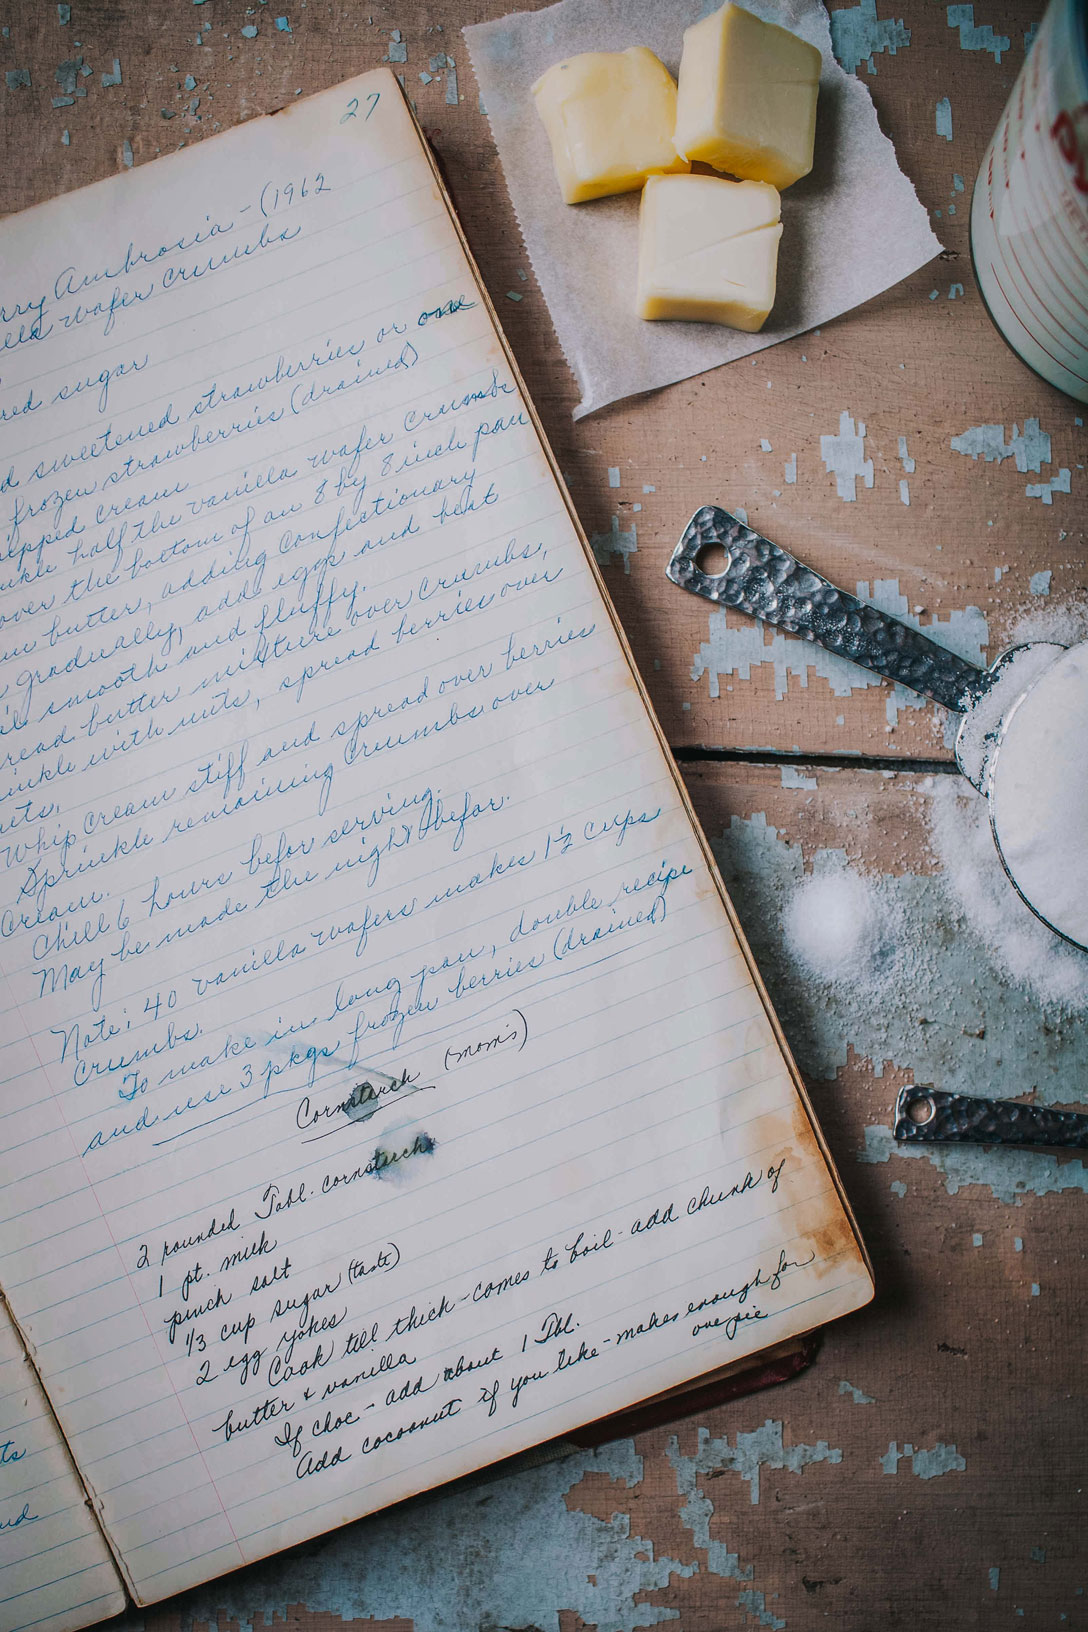 27
Ambrosia - (1962
wafer crumbs
sugar
sweetened strawberries or one
frozen strawberries (drained)
cream
half the vanilla wafer crumbs
over the bottom of an 8 by 8 inch pan
butter, adding confectionary
gradually, add eggs and beat
smooth and fluffy.
butter mixture over crumbs,
with nuts, spread berries over
Whip cream stiff and spread over berries
Sprinkle remaining crumbs over
cream.
Chill 6 hours befor serving.
May be made the night befor.
Note: 40 vanilla wafers makes 1 1/2 cups
crumbs.
To make in long pan, double recipe
and use 3 pkgs frozen berries (drained)
Cornsterch (mom's)
2 rounded Tabl. cornsterch
1 pt. milk
pinch salt
1/3 cup sugar (taste)
2 egg yokes
Cook till thick - comes to boil - add chunk of
butter & vanilla
If choc - add about 1 Tbl.
Add cocoanut if you like - makes enough for
one pie